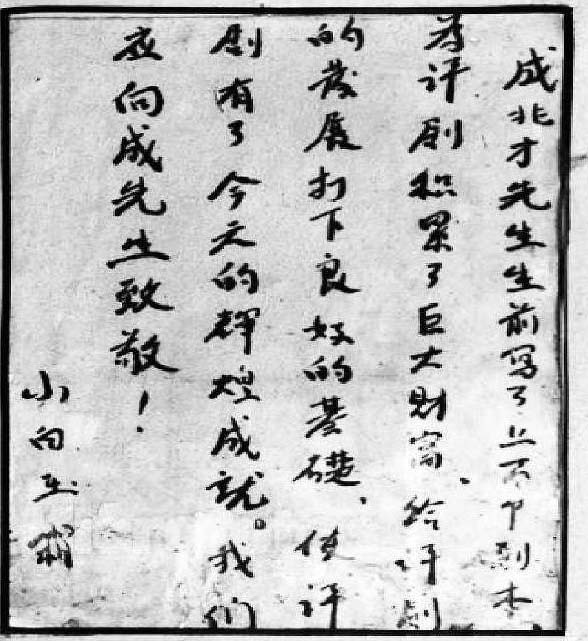 成兆才先生生前写了上百个剧本、
为评剧积累了巨大财富、给评剧
的发展打下良好的基礎、使评
剧有了今天的輝煌成就。我们
应向成先生致敬！
小白玉霜